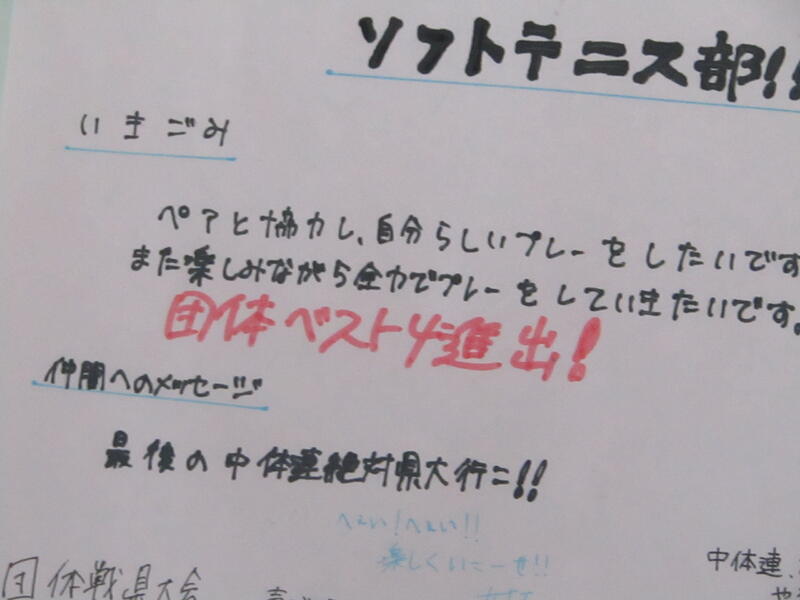 ソフトテニス部!!
いきごみ
ペアと協力し、自分らしいプレーをしたいです
また楽しみながら全力でプレーをしていきたいです。
団体ベスト4進出!
仲間へのメッセージ
最後の中体連絶対県大行こ!!
へぇい!へぇい!!
楽しくいこーぜ!!
中体連、
団体戦県大会